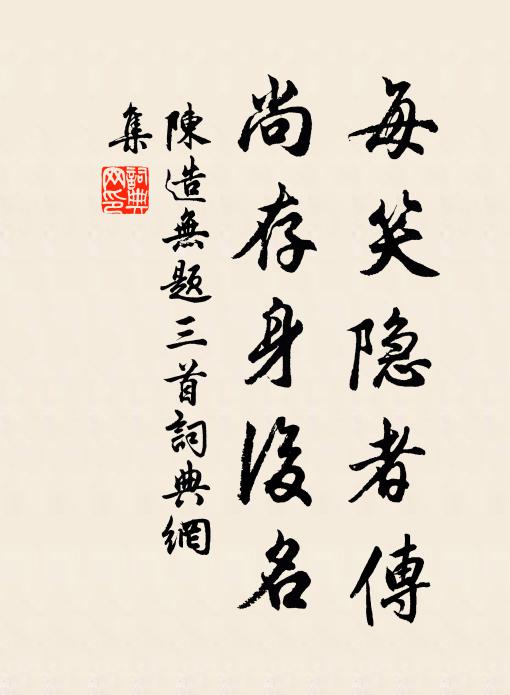 每笑隐者傳
尚存身後名
陳造無題三首詞典網
集
詞典
网印